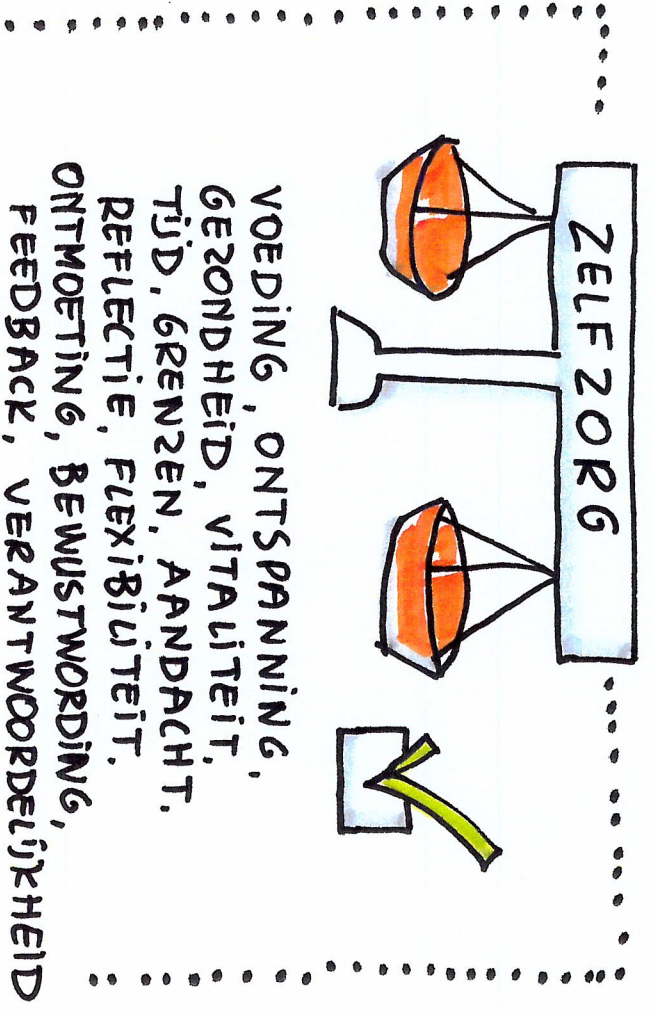 ZELFZORG
VOEDING, ONTSPANNING,
GEZONDHEID, VITALITEIT,
TIJD, GRENZEN, AANDACHT.
REFLECTIE, FLEXIBILITEIT.
ONTMOETING, BEWUSTWORDING,
FEEDBACK, VERANTWOORDELIJKHEID